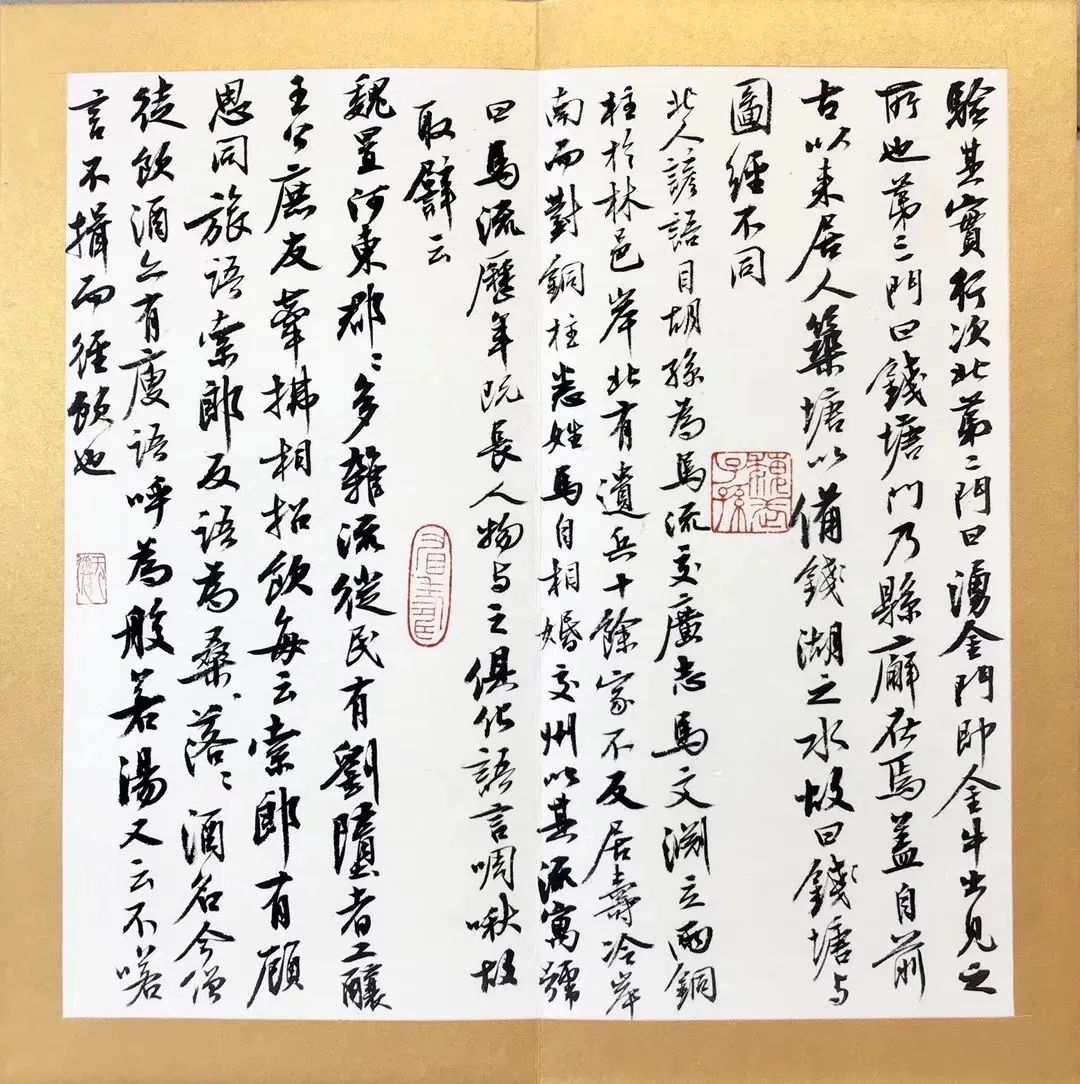 驗其實行次北第二門曰湧金門即金牛出見之
所也第三門曰錢塘門乃縣廨在焉蓋自前
古以來居人築塘以備錢湖之水故曰錢塘与
圖經不同
北人諺語目胡孫為馬流交廣志馬文淵立兩銅
柱於林邑岸北有遺兵十餘家不反居壽泠岸
南而對銅柱悉姓馬自相婚交州以其流寓號
曰馬流歷年既長人物与之俱化語言啁啾故
取譬云
魏置河東郡〻多雜流從民有劉墮者工釀
王公庶友牽拂相招飲每云索郎有顧
思同旅語索郎反語為桑〻落〻酒名今僧
徒飲酒亦有廋語呼為般若湯又云不喏
言不揖而徑頌也
子孫